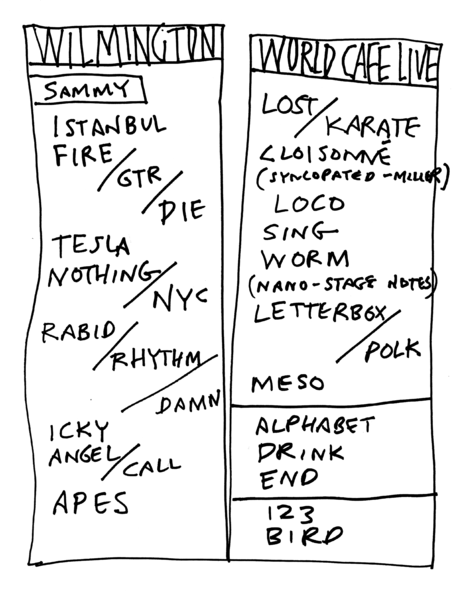 WILMINGTON
SAMMY
ISTANBUL
FIRE/
GTR/
DIE
TESLA
NOTHING/
NYC
RABID/
RHYTHM/
DAMN
ICKY
ANGEL/
CALL
APES
WORLD CAFE LIVE
LOST/
KARATE
CLOISONNÉ
(SYNCOPATED-MILLER)
LOCO
SING
WORM
(NANO-STAGE NOTES)
LETTERBOX/
POLK
MESO
ALPHABET
DRINK
END
123
BIRD